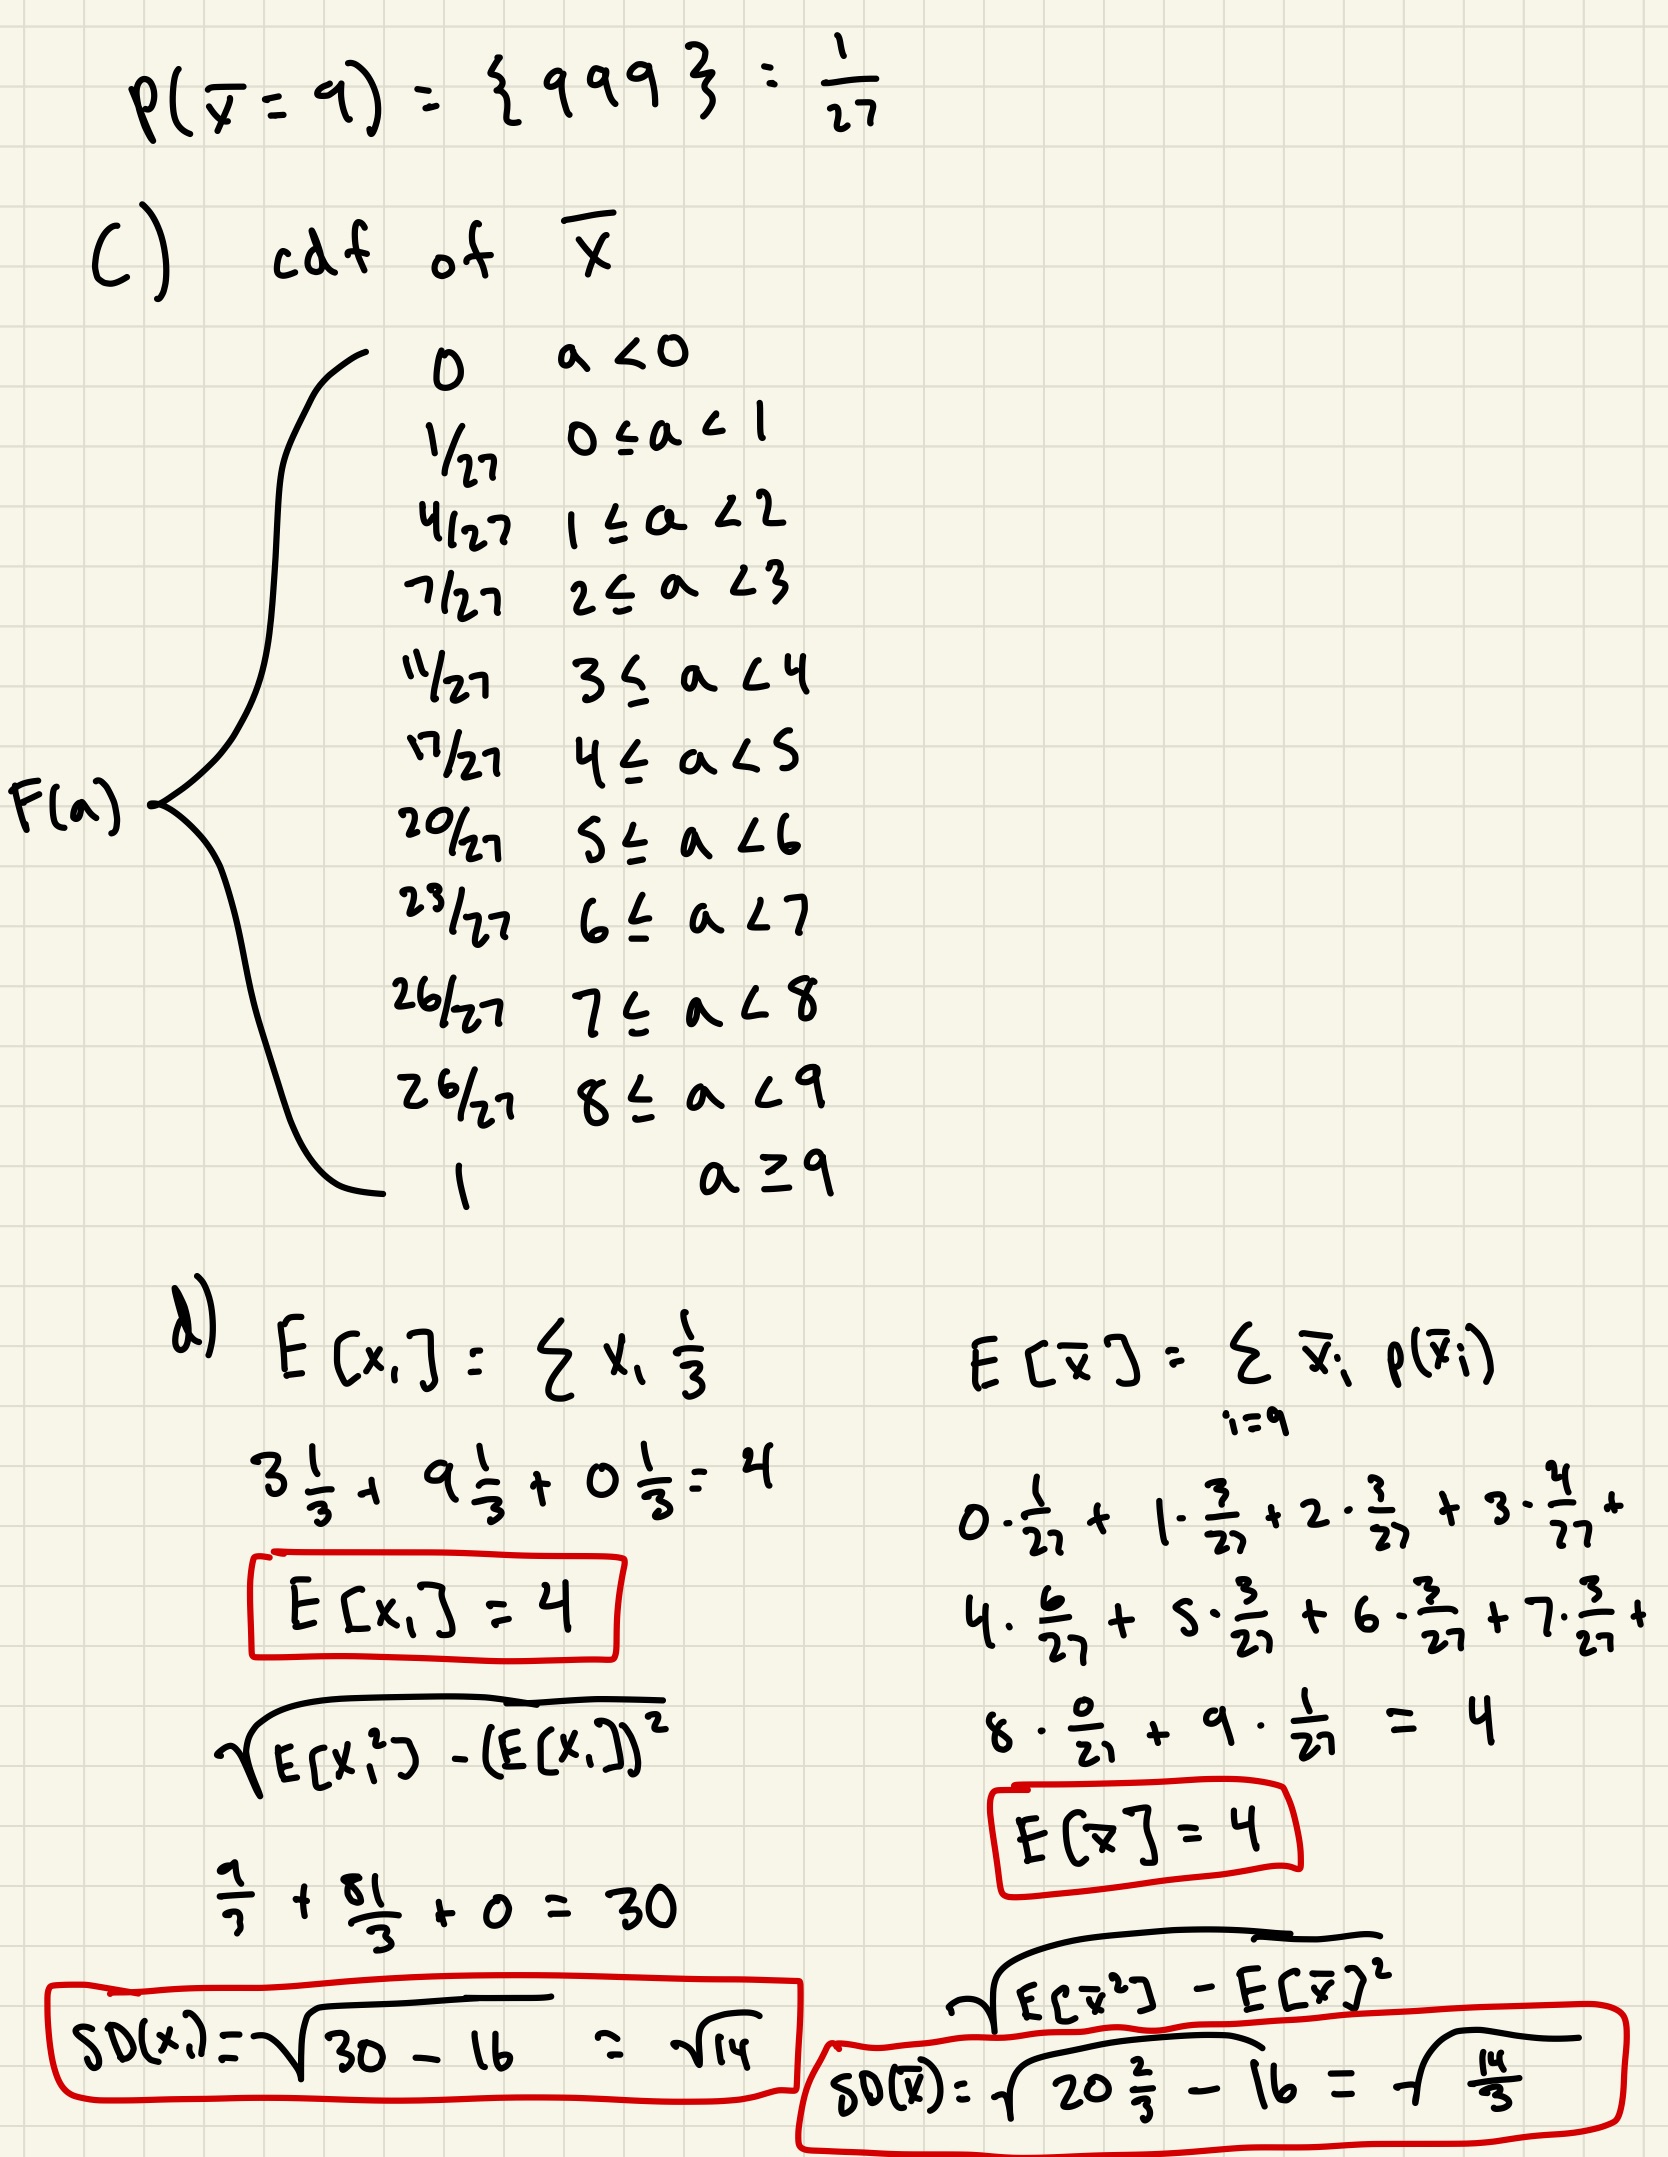 p(x̄ = 9) = {999} = 1/27
C) cdf of x̄
0 a < 0
1/27 0 ≤ a < 1
4/27 1 ≤ a < 2
7/27 2 ≤ a < 3
11/27 3 ≤ a < 4
17/27 4 ≤ a < 5
F(a)
20/27 5 ≤ a < 6
23/27 6 ≤ a < 7
26/27 7 ≤ a < 8
26/27 8 ≤ a < 9
1 a ≥ 9
d) E[x₁] = Σ x₁ 1/3
3 1/3 + 9 1/3 + 0 1/3 = 4
E[x₁] = 4
√(E[x₁²] - (E[x₁])²)
9/3 + 81/3 + 0 = 30
SD(x₁) = √(30 - 16) = √14
E[x̄] = Σ x̄ᵢ p(x̄ᵢ)
i=9
0·1/27 + 1·3/27 + 2·3/27 + 3·4/27 +
4·6/27 + 5·3/27 + 6·3/27 + 7·3/27 +
8·0/27 + 9·1/27 = 4
E[x̄] = 4
√(E[x̄²] - E[x̄]²)
SD(x̄) = √(20 2/3 - 16) = √(14/3)